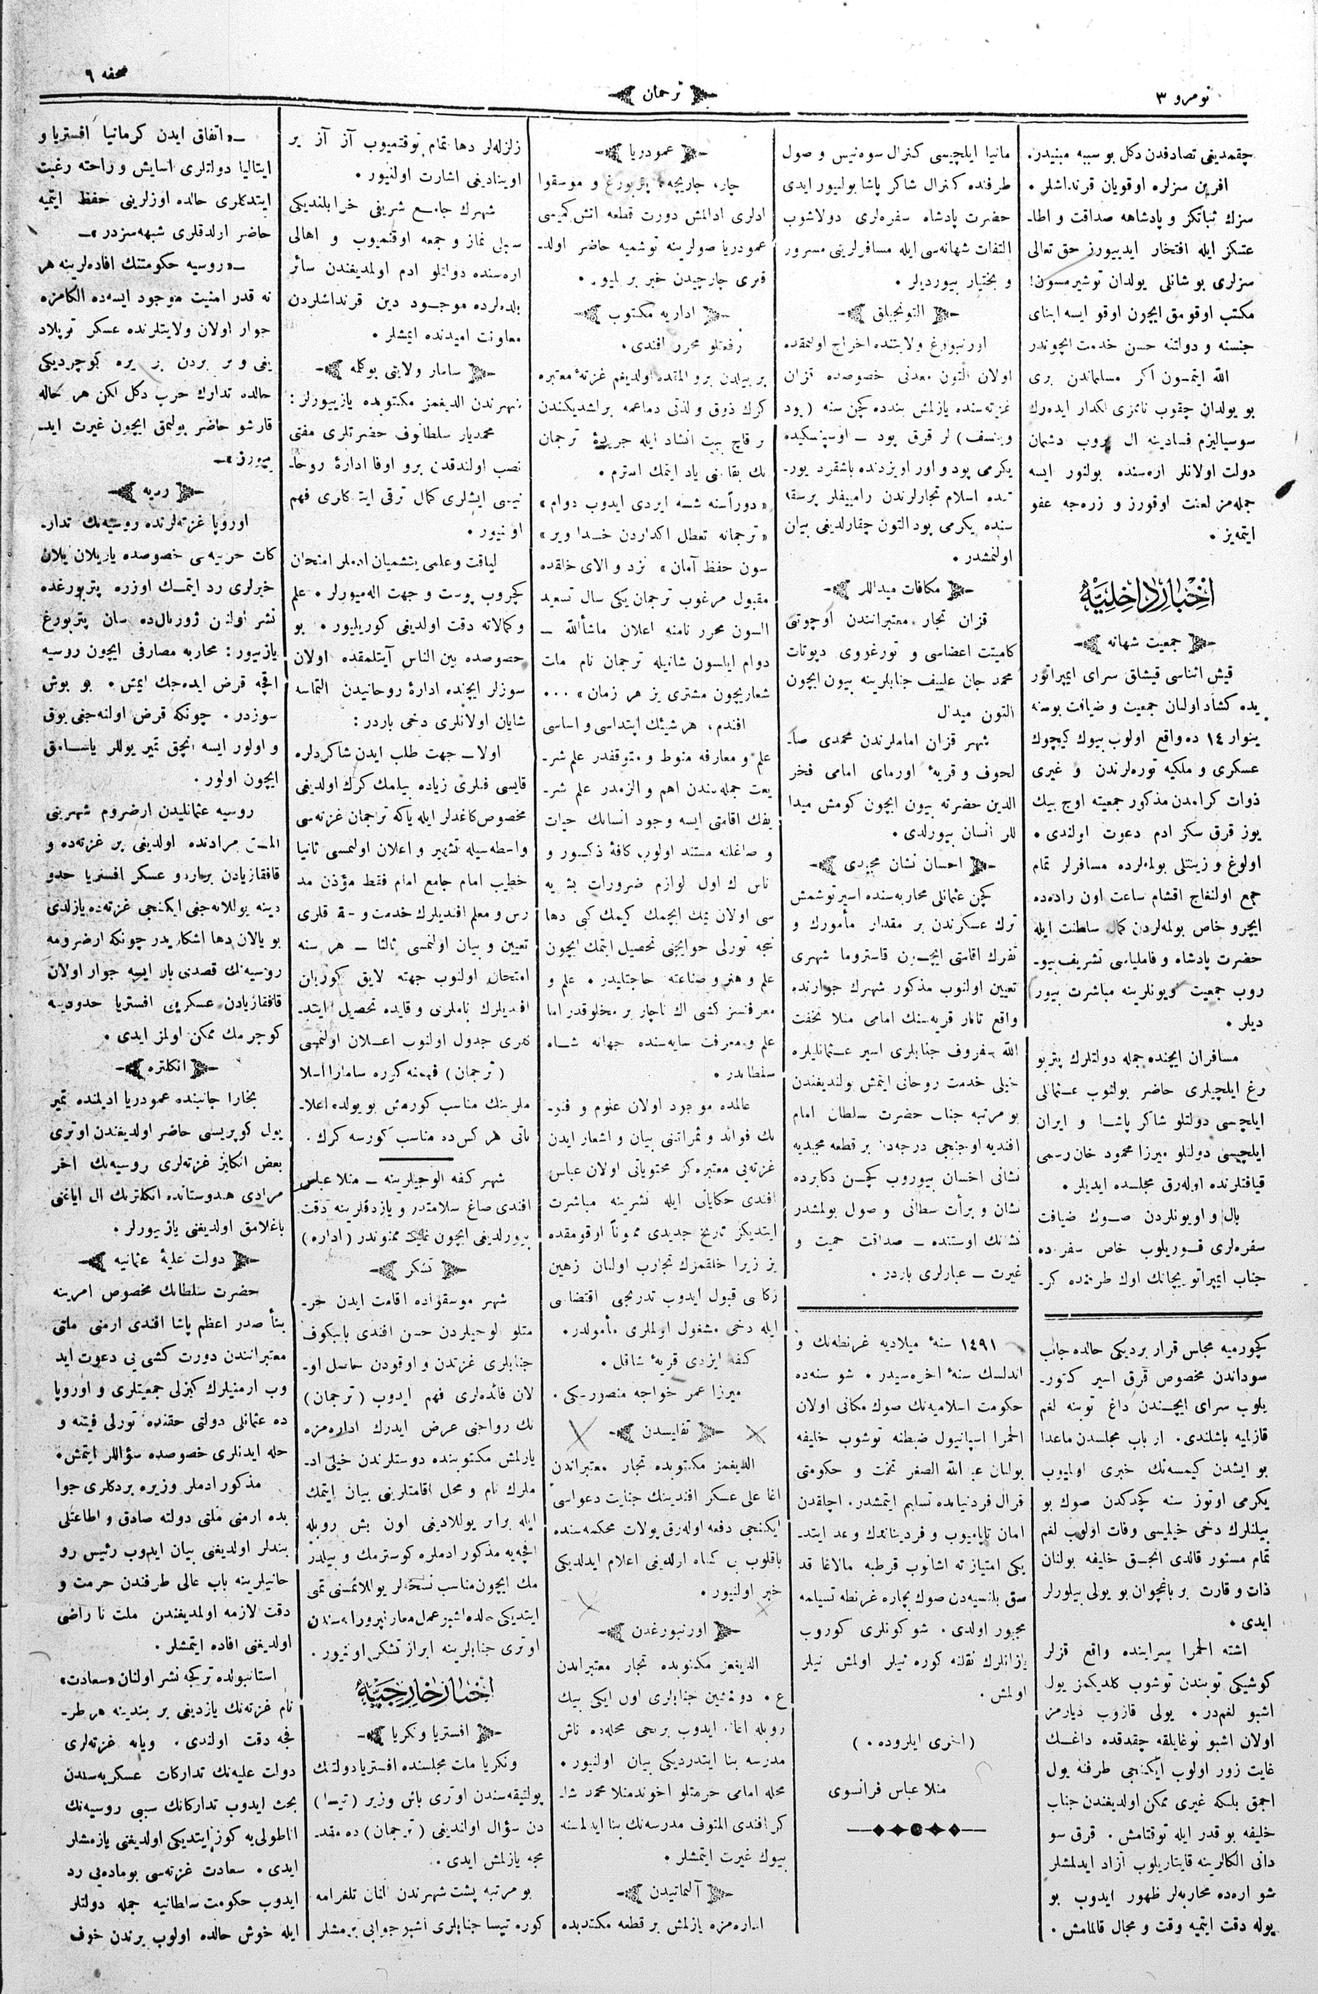 نومرو ٣
ترجمان
صحفه ٦
چقمديغى تصادفدن دكل بو سببه مبنيدر.
افرين سزلره اوقويان قرنداشلر ٠
سزك ثباتكز و پادشاهه صداقت و اطا-
عتكز ايله افتخار ايدييورز حق تعالى
سزلرى بو شانلى يولدان توشيرمسون!
مكتب اوقومق ايچون اوقو ايسه ابناى
جنسنه و دولتنه حسن خدمت ايچوندر
الله ايتمسون اكر مسلماندن برى
بو يولدان چقوب نانزى انكار ايدەرك
سوسياليزم فسادينه ال اوروب دشمان
دولت اولانلر ارەسنده بولنور ايسه
جمله‌مز لعنت اوقورز و زرەجه عفو
ايتمەيز ٠
اخبار داخليه
جمعيت شهانه
قيش اثناسى قيشاق سراى ايمپراتور
يده كشاد اولنان جمعيت و ضيافت بو سنه
ينوار ١٤ ده واقع اولوب بيوك كيچوك
عسكرى و ملكيه تورەلرندن و غيرى
ذوات كرامدن مذكور جمعيته اوچ بيك
يوز قرق سكز ادم دعوت اولندى ٠
اولوغ و زينتلى بولمه‌لرده مسافرلر تمام
جمع اولنفاج اقشام ساعت اون راده‌ده
ايچرو خاص بولمه‌لردن كمال سلطنت ايله
حضرت پادشاه و فاملياسى تشريف بيو-
روب جمعيت و يونلرينه مباشرت بيور
ديلر ٠
مسافران ايچنده جمله دولتلرك پتربو
رغ ايلچيلرى حاضر بولنوب عـثمانلى
ايلچيسى دولتلو شاكر پاشا و ايران
ايلچيسى دولتلو ميرزا محمود خان رسمى
قيافتلرنده اولەرق مجلسده ايديلر ٠
بال و اويونلردن صوك ضيافت
سفرەلرى قوريلوب خاص سفرە ده
جناب ايمپراتوريچانك اوك طرفنده كر-
كچورميه مجلس قرار برديكى حالده جانب
سوداندن مخصوص قرق اسير كتور-
يلوب سراى ايچـندن داغ توبنه لغم
قازليه باشلندى. ارباب مجلسدن ماعدا
بو ايشدن كيمسه‌نك خبرى اولميوب
يكرمى اوتوز سنه كچدكدن صوك بو
بيلنلرك دخى خيليسى وفات اولوب لغم
تمام مستور قالدى انجـق خليفه بولنان
ذات و قارت بر باغچوان بو يولى بيلورلر
ايدى ٠
اشته الحمرا سراينده واقع قزلر
كوشيكى توبندن توشوب كلديكمز يول
اشبو لغم‌در ٠ يولى قازوب ديارمز
اولان اشبو نوغايلقه چقدقده داغــك
غايت زور اولوب ايكنجى طرفنه يول
اچمق بلكه غيرى ممكن اولديغندن جناب
خليفه بو قدر ايله توقتامش. قرق سو
دانى الكالرينه قايتاريلوب آزاد ايدلمشلر
شو ارەده محاربه‌لر ظهور ايدوب بو
يوله دقت ايتميه وقت و مجال قالمامش ٠
مانيا ايلچيسى كنرال سوەنيس و صول
طرفنده كنرال شاكر پاشا بولنيور ايدى
حضرت پادشاه سفرەلرى دولاشوب
التفات شهانه‌سى ايله مسافرلرينى مسرور
و بختيار بيورديلر ٠
التونجيلق
اورنبورغ ولايتنده اخراج اولنمقده
اولان التون معدنى خصوصده قزان
غزته‌سنده يازلمش بندده كچن سنه (پود
وينسف) لر قرق پود ــ اوسپنسكيده
يكرمى پود و اور اويزدنده باشقرد يور-
تنده اسلام تجارلرندن راميفلر پرسقه
سنده يكرمى پود التون چقارلديغى بيان
اولنمشدر ٠
مكافات ميداللر
قزان تجار معتبرانندن اوچوتنى
كاميتت اعضاسى و تورغووى ديوتات
محمد جان علييف جنابلرينه بيون ايچون
التون ميدال
شهر قزان اماملرندن محمدى صا-
لحوف و قريهٔ اورماى امامى فخر
الدين حضرته بيون ايچون كومش ميدا
للر انسان بيورلدى ٠
احسان نشان مجيدى
كچن عثمانلى محاربه سنده اسير توشمش
ترك عسكرندن بر مقدار مأمورك و
نفرك اقامتى ايچـون قاستروما شهرى
تعيين اولنوب مذكور شهرك جوارنده
واقع تاتار قريه‌سنك امامى منلا نخفت
الله سفروف جنابلرى اسير عـثمانليلره
خيلى خدمت روحانى ايتمش ولنديغندن
بو مرتبه جناب حضرت سلطان امام
افنديه اوچنجى درجەدن بر قطعه مجيديه
نشانى احسان بيوروب كچـن دكابرده
نشان و برأت سلطانى و صول بولمشدر
نشانك اوستنده ــ صداقت حميت و
غيرت ــ عبارلرى باردر ٠
١٤٩١ سنهٔ ميلاديه غرنطه‌نك و
اندلسك سنهٔ اخرەسيدر ٠ شو سنه‌ده
حكومت اسلاميه‌نك صوك مكانى اولان
الحمرا اسپانيول ضبطنه توشوب خليفه
بولنان عبد الله الصغر تخت و حكومتى
قرال فردنياندە تسليم ايتمشدر. اچلقدن
امان تاپاميوب و فرديناندك وعد ايتد-
يكى امتيازته اشانوب قرطبه مالاغا قد
سق بلنسيه‌دن صوك بچاره غرنطه تسليمه
مجبور اولدى. شو كونلرى كوروب
يازانلرك نقلنه كوره نيلر اولمش نيلر
اولمش ٠
(اخرى ايلروده ٠)
منلا عباس فرانسوى
عمودريا
چار، جاريجه‌ده پتربورغ و موسقوا
ادلرى ادالمش دورت قطعه اتش كميسى
عمودريا صولرينه توشميه حاضر اولد-
قرى چارجيدن خبر بريليور ٠
اداريه مكتوب
رفعتلو محرر افندى.
بر ييلدن برو المقده اولديغم غزتهٔ معتبره
كرك ذوق و لذتى دماغمه براشديكندن
بر قاچ بيت انشاد ايله جريدهٔ ترجمان
نك بقاسنى ياد ايتمك استرم ٠
«دورآسنه شسه ايردى ايدوب دوام»
«ترجمانه تعطل اكداردن خـدا وير»
سون حفظ آمان» نزد والاى خالقده
مقبول مرغوب ترجمان يكى سال تسعيد
الـون محرر نامنه اعلان ماشأالله ــ
دوام ايلسون شانيله ترجمان نام مات
شعاريچون مشترى يز هر زمان» ٠٠٠
افندم، هر شيئك ابتداسى و اساسى
علم و معارفه منوط و متوقفدر علم شر-
يعت جمله‌سندن اهم و الزمدر علم شر-
يفك اقامتى ايسه وجود انسانك حيات
و صاغلنه مستند اولوب كافهٔ ذكور و
ناس ك اول لوازم ضرورات بشريه
سى اولان يمك ايچمك كيمك كبى دها
نيجه تورلى حوايجنى تحصيل ايتمك ايچون
علم و هنر و صناعته حاجتليدر ٠ علم و
معرفتسز كشى اك ناچار بر مخلوقدر اما
علم و معرفت سايه‌سنده جهانه شـاه
سلطاندر ٠
عالمده موجود اولان علوم و فنو-
نك فوائد و ثمراتنى بيان و اشعار ايدن
غزته‌يى معتبرەكز محتوياتى اولان عباس
افندى حكاياتى ايله نشرينه مباشرت
ايتديكز تاريخ جديدى ممنوناً اوقومقده
يز زيرا خلقمزك تجارب اولنان زهين
زكاسى قبول ايدوب تدرجى اقتضاسى
ايله دخى مشغول اولملرى مأمولدر.
كفه ايزدى قريهٔ شاقل ٠
ميرزا عمر خواجه منصورسكى.
تفليسدن
الديغمز مكتوبده تجار معتبراندن
اغا على عسكر افندينك جنايت دعواسى
ايكنجى دفعه اولەرق پولات محكمه‌سنده
باقلوب بى كناه ارلديغى اعلام ايدلديكى
خبر اولنيور ٠
اورنبورغدن
الديغمز مكتوبده تجار معتبراندن
ع ٠ دوشنين جنابلرى اون ايكى بيك
روبله اعانه ايدوب برنجى محله‌ده تاش
مدرسه بنا ايتدرديكى بيان اولنيور ٠
محله امامى حرمتلو اخوند منلا محمد شا-
كر افندى المنوف مدرسه‌نك بنا ايدلمسنه
بيوك غيرت ايتمشلر ٠
آلماتيدن
ادارەمزه يازلمش بر قطعه مكتوبده
زلزله‌لر دها تمام توقتميوب آز آز ير
اويناديغى اشارت اولنيور ٠
شهرك جامع شريفى خراب‌لنديكى
سببلى نماز و جمعه اوقنميوب و اهالى
ارەسنده دولتلو ادم اولمديغندن سائر
بلده‌لرده موجود دين قرنداشلردن
معاونت اميدنده ايمشلر ٠
سامار ولايتى بوكلمه
شهرندن الديغمز مكتوبده يازييورلر:
محمديار سلطانوف حضرتلرى مفتى
نصب اولندقدن برو اوفا ادارهٔ روحا-
نيسى ايشلرى كمال ترقى ايتدكارى فهم
اولنيور ٠
لياقت و علمى يتشميان ادملر امتحان
كچروب پوست و جهت اله‌ميورلر ٠ علم
و كمالاته دقت اولديغى كوريليور ٠ بو
خصوصده بين الناس آيتلمقده اولان
سوزلر ايچنده ادارهٔ روحانيدن التماسه
شايان اولانلرى دخى باردر:
اولا ــ جهت طلب ايدن شاكردلره
قايسى فنلرى زياده بيلمك كرك اولديغى
مخصوص كاغدلر ايله ياكه ترجمان غزته‌سى
واسطه‌سيله تشهير و اعلان اولنمسى ثانيا
خطيب امام جامع امام فقط مؤذن مد
رس و معلم افنديلرك خدمت و حقلرى
تعيين و بيان اولنمسى ثالثا ــ هر سنه
امتحان اولنوب جهته لايق كورپان
افنديلرك ناملرى و قايده تحصيل ايتد-
كلرى جدول اولنوب اعلان اولنمسى
(ترجمان) فهمنه كوره سامارا اسلا
ملرينك مناسب كورمش بو يولده اعلا-
ناتى هر كس‌ده مناسب كورسه كرك.
شهر كفه الوجيلرينه ــ منلا عباس
افندى صاغ سلامتدر و يازدقلرينه دقت
بيورلديغى ايچون غايت ممنوندر (اداره)
تشكر
شهر موسقواده اقامت ايدن حر-
متلو لوحيلردن حسن افندى بابيكوف
جنابلرى غزتدن و اوقودن حاصل او-
لان فائده‌لرى فهم ايدوب (ترجمان)
نك رواجنى عرض ايدرك ادارەمزه
يازلمش مكتوبنده دوستلرندن خيلى اد-
ملرك نام و محل اقامتلرينى بيان ايتمك
ايله برابر يوللاديغى اون بش روبله
اقچه‌يه مذكور ادملره كوسترمك و بيلدر
مك ايچون مناسب نسخه‌لر يوللانمسنى تمنى
ايتديكى حالده اشبو عمل معارفپرورانه‌سندن
اوترى جنابلرينه ابراز تشكر اولنيور.
اخبار خارجيه
افستريا ونكريا
ونكريا مات مجلسنده افستريا دولتنك
پولتيقه‌سندن اوترى باش وزير (تيسا)
دن سؤال اولنديغى (ترجمان) ده مقد-
مجه يازلمش ايدى.
بو مرتبه پشت شهرندن النان تلغرامه
كوره تيسا جنابلرى اشبو جوابى برمشلر
ــ«اتفاق ايدن كرمانيا افستريا و
ايتاليا دولتلرى اسايش و راحته رغبت
ايتدكلرى حالده اوزلرينى حفظ ايتميه
حاضر ارلدقلرى شبهه‌سزدر»ــ
ــ«روسيه حكومتنك افاده‌لرينه هر
نه قدر امنيت موجود ايسه‌ده الكامزه
جوار اولان ولايتلرنده عسكر توپلاد
يغى و بر بردن بر يره كوچرديكى
حالده تدارك حرب دكل ايكن هر حاله
قارشو حاضر بولنمق ايچون غيرت ايد-
ييورز»ــ
روسيه
اوروپا غزته‌لرنده روسيه‌نك تدار-
كات حربيه‌سى خصوصده يازيلان يلان
خبرلرى رد ايتمك اوزره پتربورغده
نشر اولنان ژورنال‌ده سان پتربورغ
يازييور: محاربه مصارفى ايچون روسيه
اقچه قرض ايده‌جك ايمش ٠ بو بوش
سوزدر. چونكه قرض اولنه‌جغى يوق
و اولور ايسه انجق تمير يوللر ياصامق
ايچون اولور ٠
روسيه عثمانليدن ارضروم شهرينى
المق مرادنده اولديغى بر غزته‌ده و
قافقازيادن برخاردو عسكر افستريا حدو
دينه يوللانه‌جغى ايكنجى غزته‌ده يازلدى
بو يالان دها اشكاريدر چونكه ارضرومه
روسيه‌نك قصدى بار ايسه جوار اولان
قافقازيادن عسكرينى افستريا حدودينه
كوچرمك ممكن اولمز ايدى ٠
انكلتره
بخارا جانبنده عمودريا اديلمنده تمير
يول كوپريسى حاضر اولديغندن اوترى
بعض انكليز غزته‌لرى روسيه‌نك اخر
مرادى هندوستانده انكلترنك ال اياغنى
باغلامق اولديغنى يازييورلر ٠
دولت عليهٔ عثمانيه
حضرت سلطانك مخصوص امرينه
بنأ صدر اعظم پاشا افندى ارمنى ملتى
معتبرانندن دورت كشى يى دعوت ايد
وب ارمنيلرك كيزلى جمعيتلرى و اوروپا
ده عثمانلى دولتى حقنده تورلى فيتنه و
حله ايدنلرى خصوصده سؤاللر ايتمش ٠
مذكور ادملر وزيره برديكلرى جوا
بده ارمنى ملتى دولته صادق و اطاعتلى
بندلر اولديغنى بيان ايدوب رئيس رو
حانيلرينه باب عالى طرفندن حرمت و
دقت لازمه اولمديغندن ملت نا راضى
اولديغنى افاده ايتمشلر ٠
استانبولده تركجه نشر اولنان «سعادت»
نام غزته‌نك يازديغى بر بندينه هر طر-
فجه دقت اولندى. ويانه غزته‌لرى
دولت عليه‌نك تداركات عسكريه‌سندن
بحث ايدوب تداركاتك سببى روسيه‌نك
اناطولى‌يه كوز ايتديكى اولديغنى يازمشلر
ايدى ٠ سعادت غزته‌سى بو ماده‌يى رد
ايدوب حكومت سلطانيه جمله دولتلر
ايله خوش حالده اولوب برندن خوف